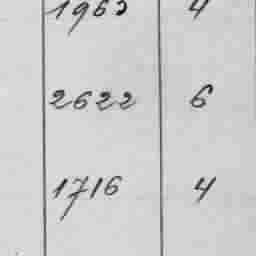 1963 4
2622 6
1716 4